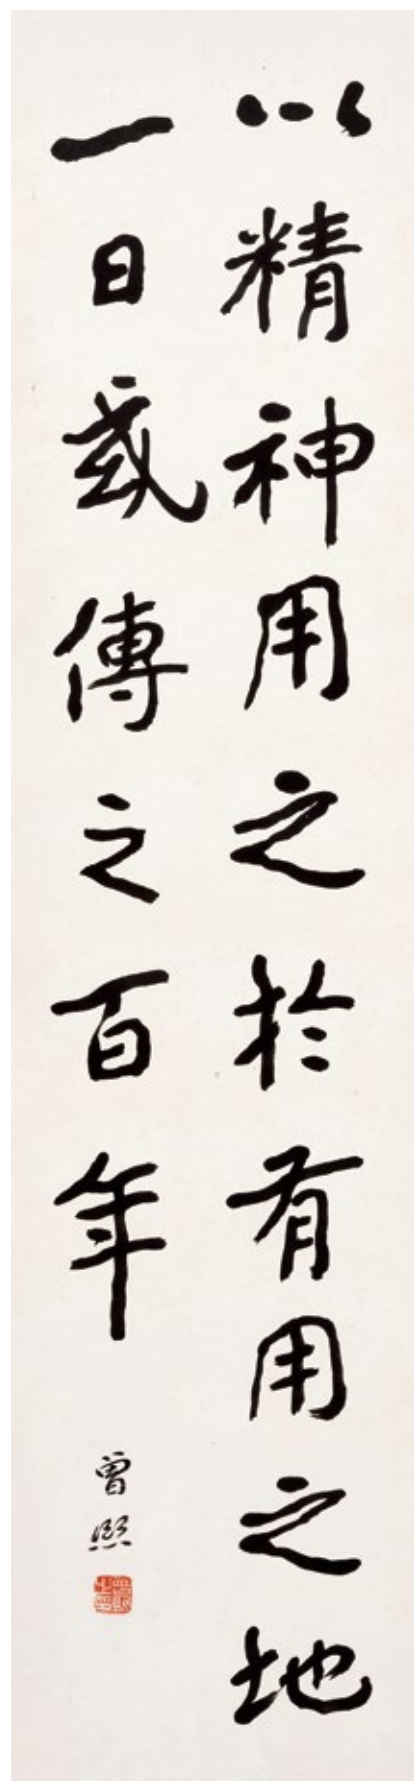 以精神用之於有用之地
一日或傳之百年
曾熙